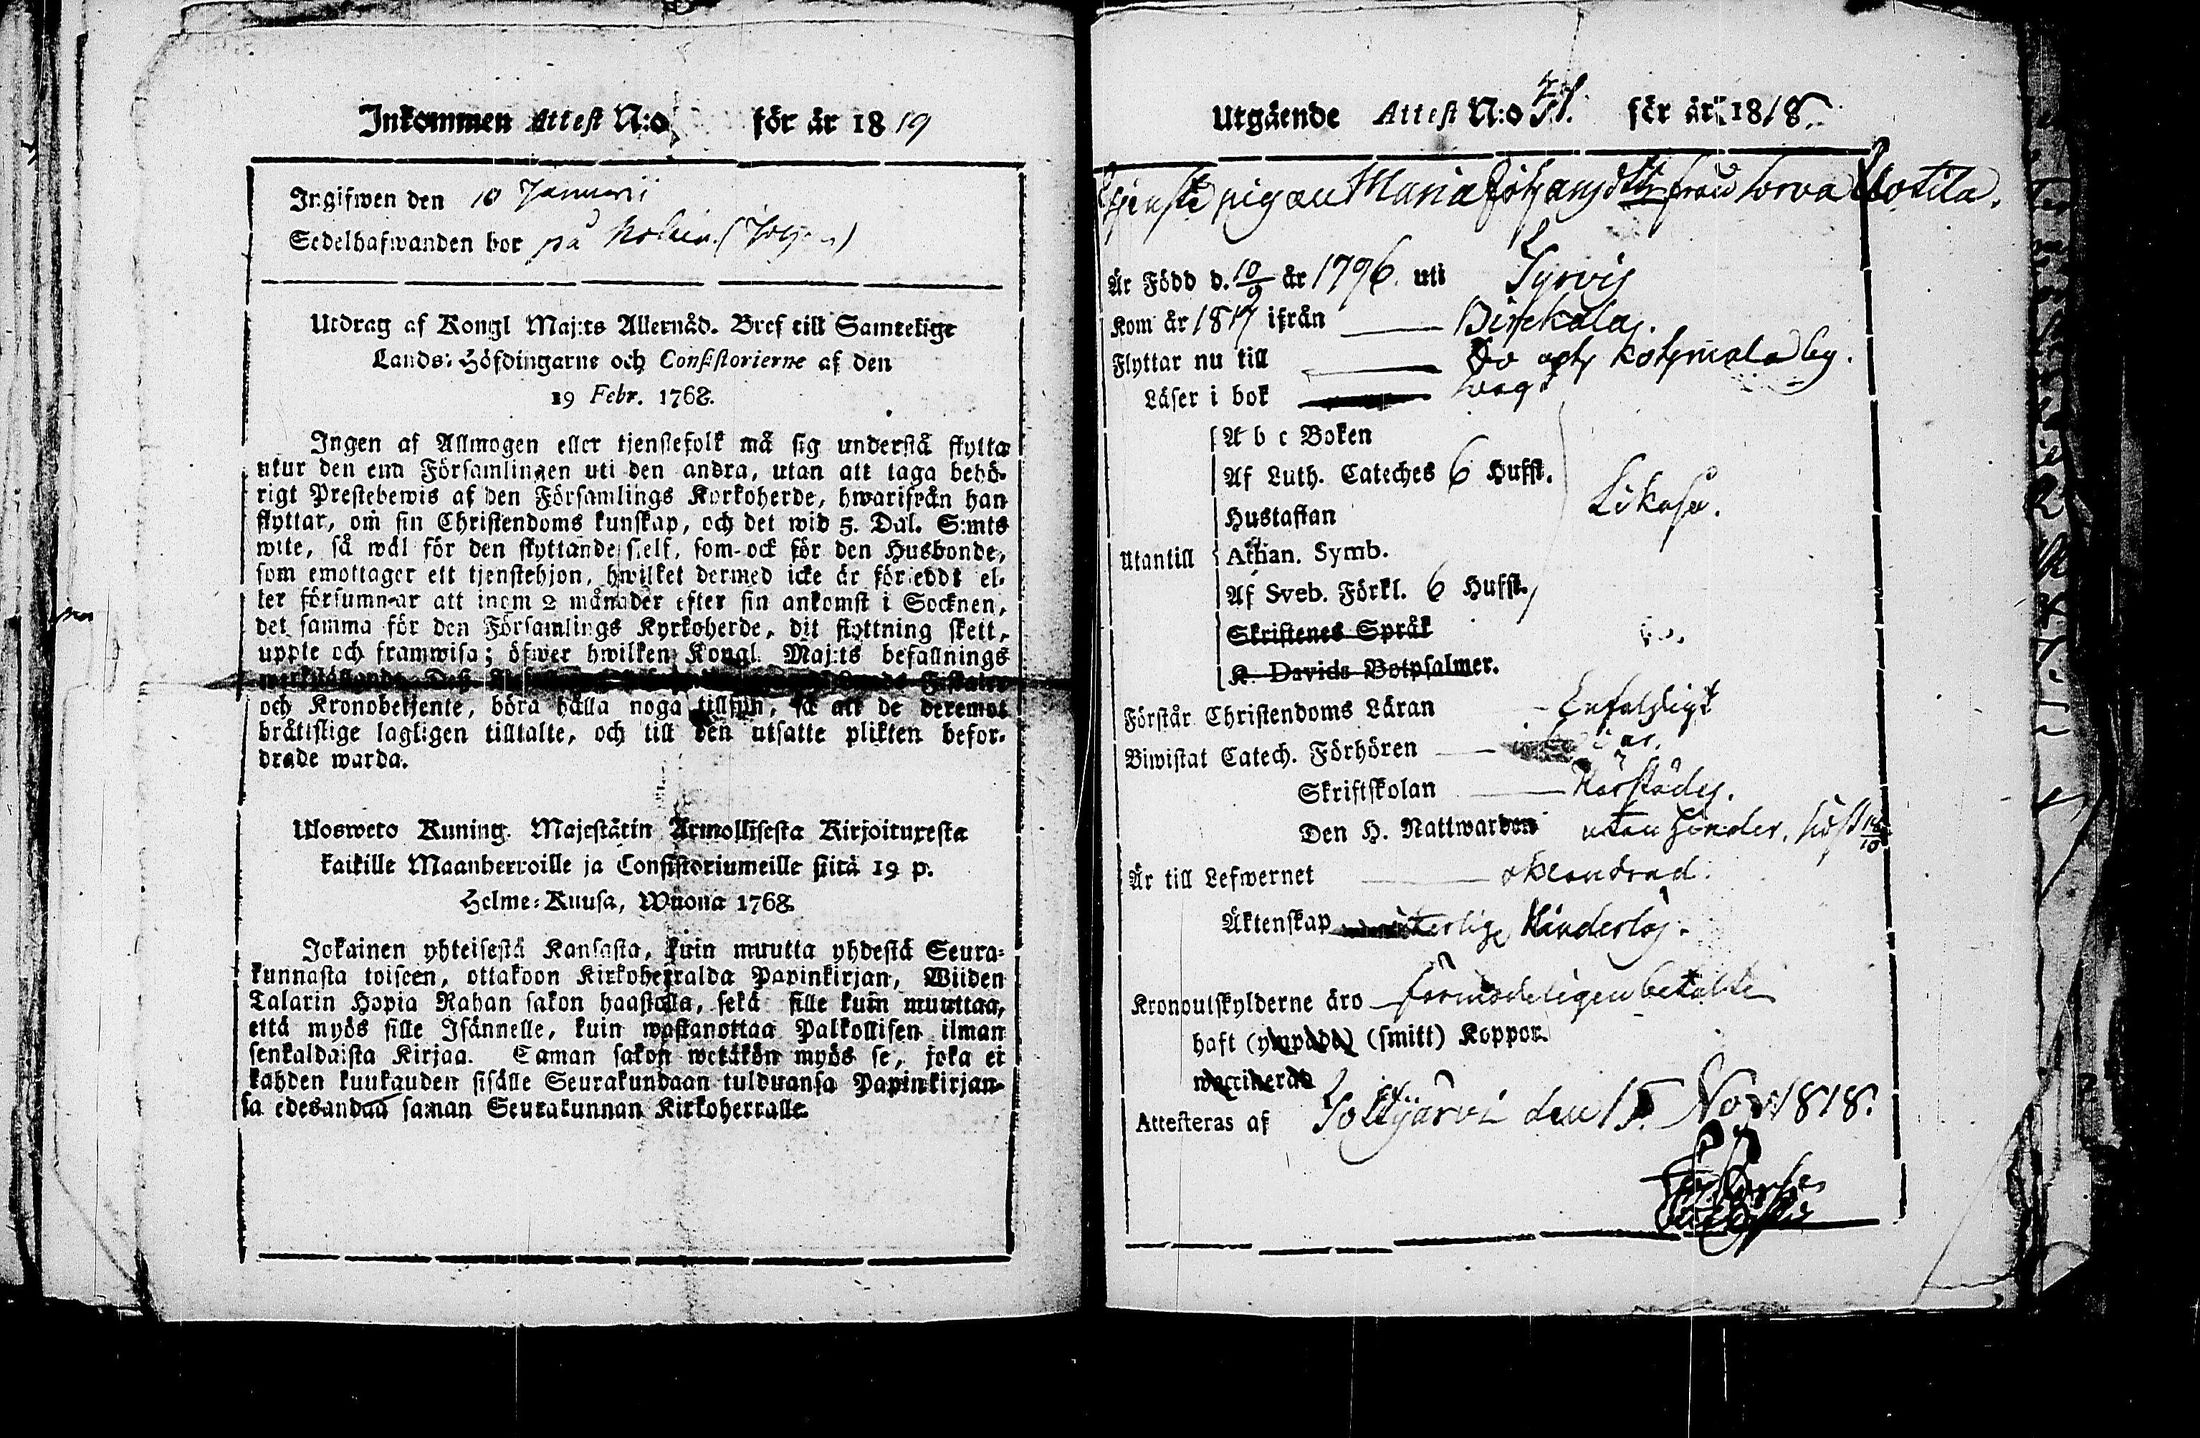 Inkommen Attest N:o för år 1819
Ingifwen den 10 Januarii
Sedelhafwanden bor på
Utdrag af Kongl Maj:ts Allernåd. Bref till Samtelige
Lands-Höfdingarne och Consistorierne af den
19 Febr. 1768.
Ingen af Allmogen eller tjenstefolk må sig understå flytta
utur den ena Församlingen uti den andra, utan att taga behö-
rigt Prestebewis af den Församlings Kyrkoherde, hwarifrån han
flyttar, om sin Christendoms kunskap, och det wid 5. Dal. S:mts
wite, så wäl för den flyttande sielf, som ock för den Husbonde,
som emottager ett tjenstehjon, hwilket dermed icke är förseddt el-
ler försummar att inom 2 månader efter sin ankomst i Socknen,
det samma för den Församlings Kyrkoherde, dit flyttning skett,
uppte och framwisa; öfwer hwilken Kongl. Maj:ts befallnings
och Kronobetjente, böra hålla noga tillsyn, så att de deremot
bråttslige lagligen tilltalte, och till den utsatte plikten befor-
drade warda.
Ulosweto Kuning. Majestätin Armollisesta Kirjoituxesta
kaikille Maanherroille ja Consistoriumeille siitä 19 p.
Helme-Kuusa, Wuonna 1768.
Jokainen yhteisestä Kansasta, kuin muutta yhdestä Seura-
kunnasta toiseen, ottakoon Kirkoherralda Papinkirjan, Wiiden
Talarin Hopia Rahan sakon haastolla, sekä sille kuin muuttaa,
että myös sille Isännelle, kuin wastanottaa Palkollisen ilman
senkaldaista Kirjaa. Saman sakon wetäkön myös se, joka ei
kahden kuukauden sisälle Seurakundaan tulduansa Papinkirjan-
sa edesandaa saman Seurakunnan Kirkoherralle.
Utgående Attest N:o för år 1818.
Tjenste pigan Maria Johansdtr från Sorva
Är Född d. 10/9 år 1796 uti Tyrvis
Kom år 1817 ifrån Birckala
Flyttar nu till
Läser i bok
A b c Boken
Af Luth. Cateches 6 Hufst.
Hustaflan
Likaså.
Utantill Athan. Symb.
Af Sveb. Förkl. 6 Hufst.
Skriftenes Språk
K. Davids Botpsalmer.
Förstår Christendoms Läran Enfaldigt
Biwistat Catech. Förhören
Skriftskolan Härstädes.
Den H. Nattwarden utan hinder,
Är till Lefwernet oklandrad.
Äktenskap hinderlös.
Kronoutskylderne äro förmodeligen betalte
haft (ympade) (smitt) Koppor.
waccinerad
Attesteras af Sottijärvi den 15 Nov. 1818.